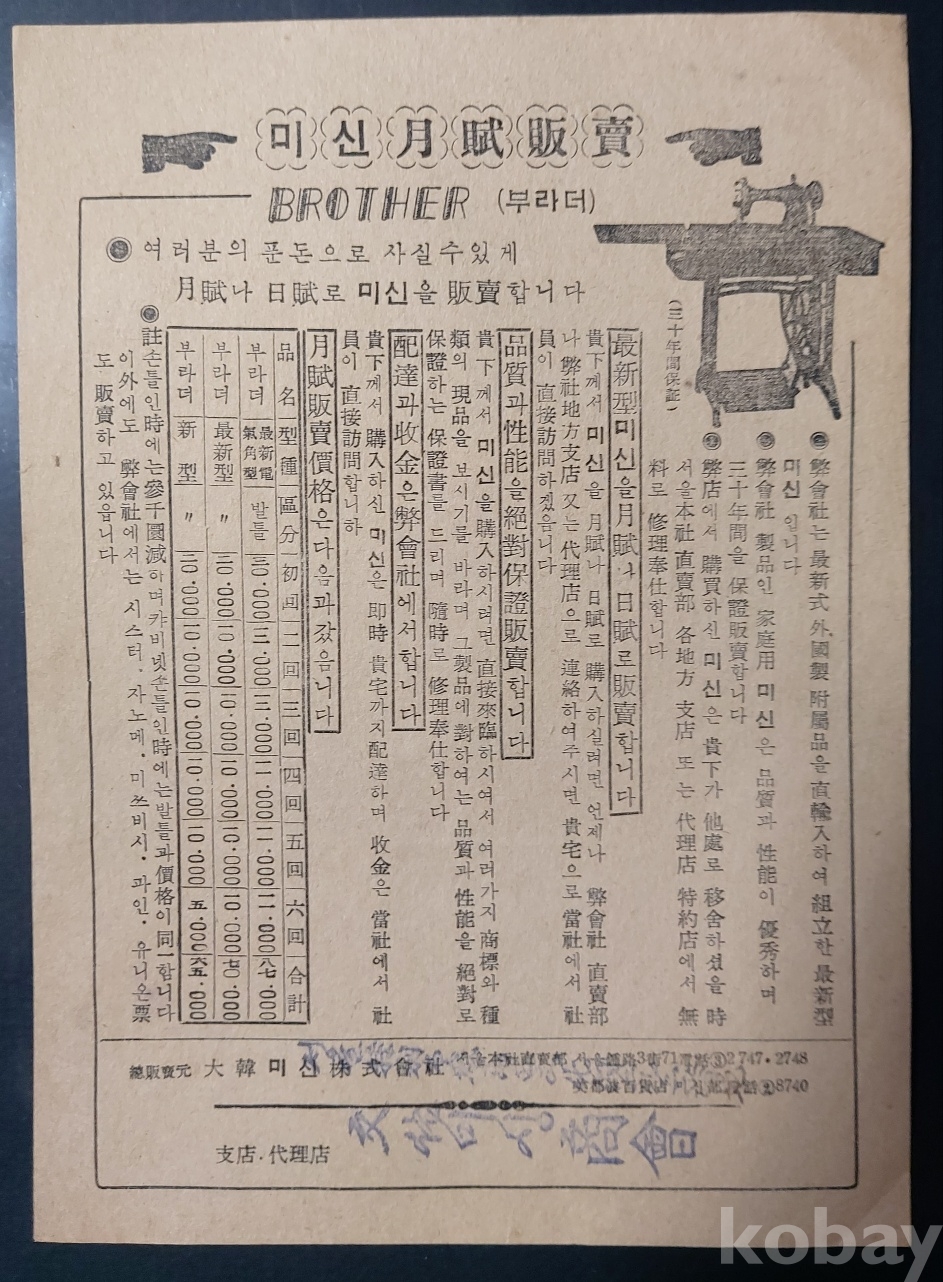 미신月賦販賣
BROTHER (부라더)
여러분의 푼돈으로 사실수있게
月賦나 日賦로 미신을 販賣합니다
(三十年間保証)
弊會社는 最新式 外國製 附屬品을 直輸入하여 組立한 最新型
미신 입니다
弊會社 製品인 家庭用 미신은 品質과 性能이 優秀하며
三十年間을 保證販賣합니다
弊店에서 購買하신 미신은 貴下가 他處로 移舍하셨을 時
서울本社 直賣部 各地方 支店 또는 代理店 特約店에서 無
料로 修理奉仕합니다
最新型미신을月賦나日賦로販賣합니다
貴下께서 미신을 月賦나 日賦로 購入하실려면 언제나 弊會社 直賣部
나 弊社地方支店 又는 代理店으로 連絡하여주시면 貴宅으로 當社에서 社
員이 直接訪問하겠읍니다
品質과性能을絕對保證販賣합니다
貴下께서 미신을 購入하시려면 直接來臨하시여서 여러가지 商標와 種
類의 現品을 보시기를 바라며 그製品에 對하여는 品質과 性能을 絕對로
保證하는 保證書를 드리며 隨時로 修理奉仕합니다
配達과收金은弊會社에서합니다
貴下께서 購入하신 미신은 即時 貴宅까지配達하며 收金은 當社에서 社
員이 直接訪問합니다
月賦販賣價格은다음과갔읍니다
品名 型種 區分 初回 二回 三回 四回 五回 六回 合計
부라더 最新電氣角型 발틀 三0.000 一三.000 一三.000 一一.000 一一.000 一一.000 八七.000
부라더 最新型 〃 二0.000 一0.000 一0.000 一0.000 一0.000 一0.000 七0.000
부라더 新型 〃 二0.000 一0.000 一0.000 一0.000 一0.000 五.000 六五.000
註 손틀인時에는參千圜減하며캬비넷손틀인時에는발틀과價格이同一합니다
이外에도 弊會社에서는 시스터.자노메.미쓰비시.파인.유니온票
도 販賣하고 있읍니다
總販賣元 大韓미신株式會社 서울本社直賣部 3街71 2747·2748
8740
支店.代理店
미싱商會
kobay